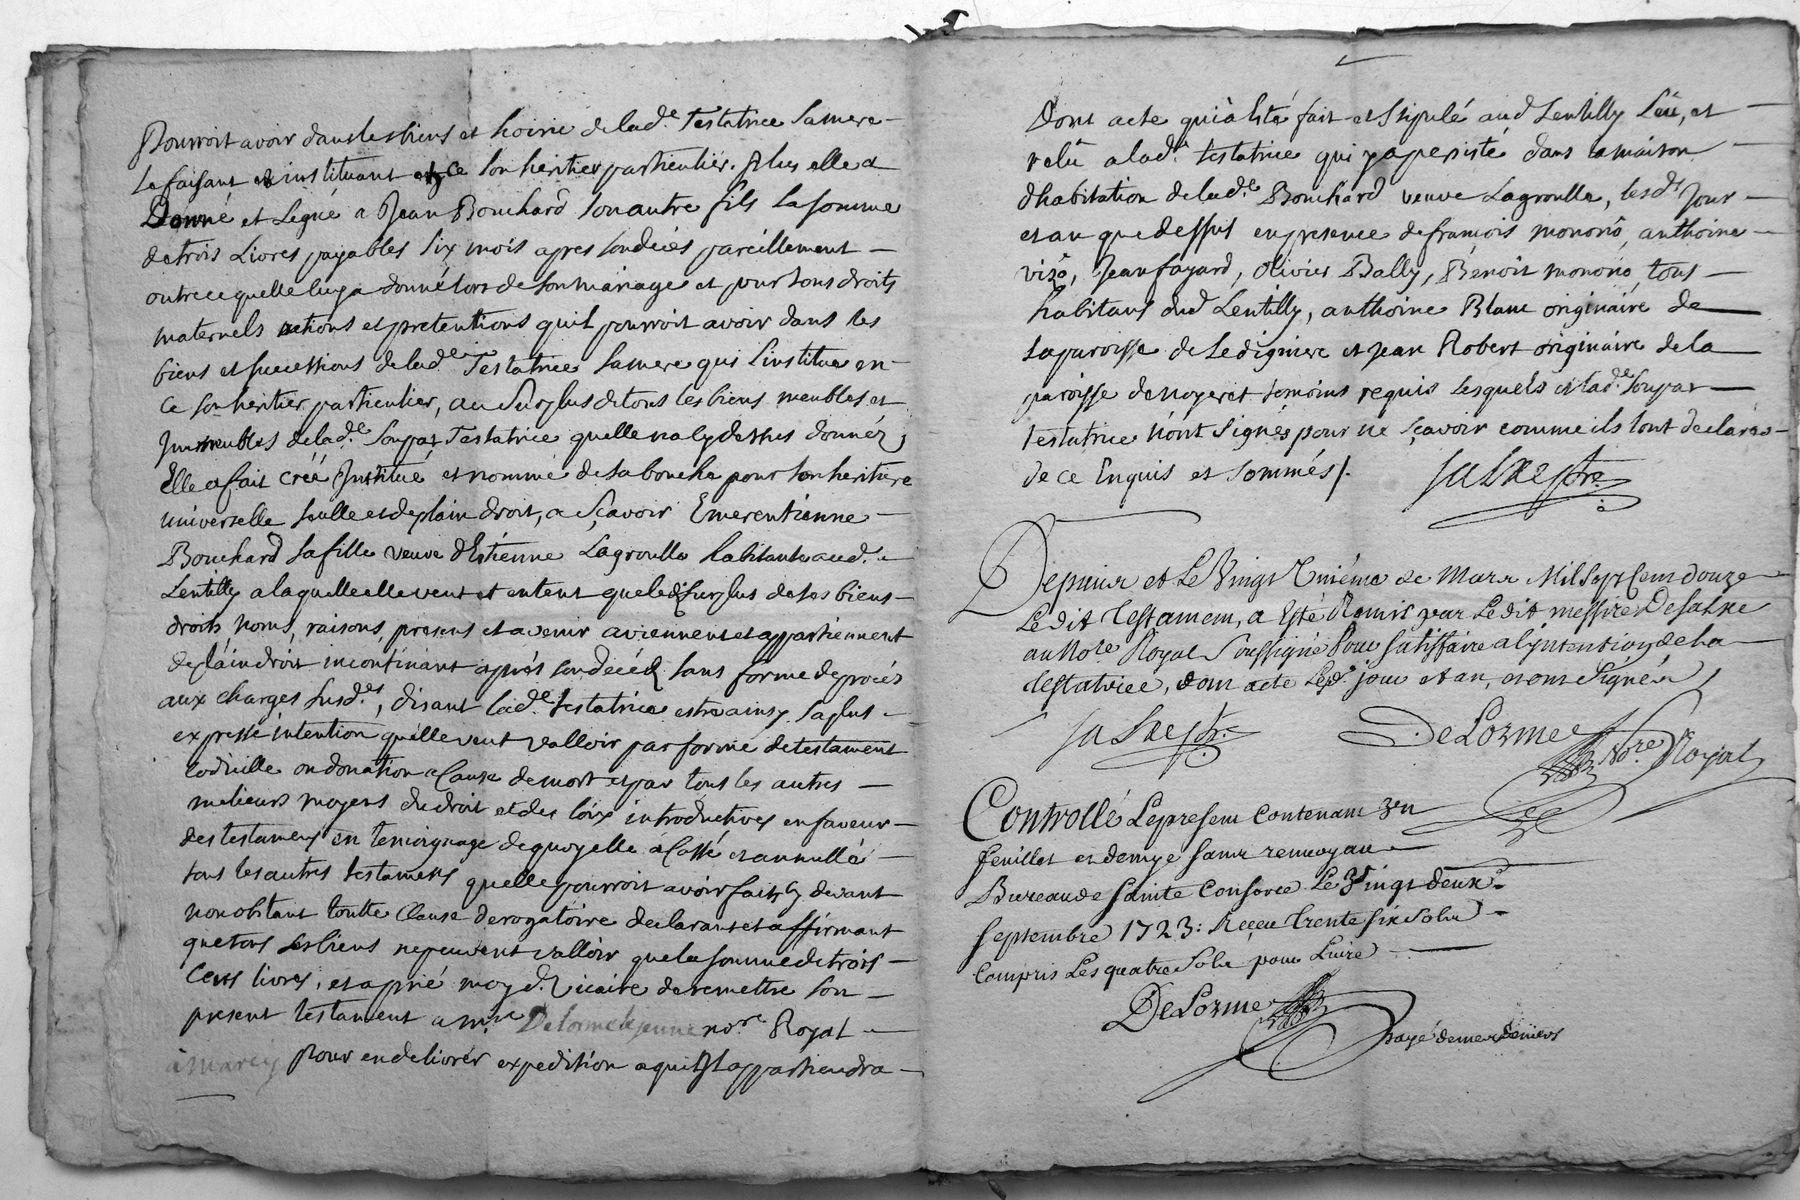 Pourroit avoir dans les biens et hoirie de lad.e Testatrice sa mere
le faisant et instituant en ce son heritier particulier. Plus elle a
Donné et Legué a Jean Bouchard son autre fils la somme
de trois Livres payables six mois apres son decés pareillement
outre ce quelle luy a donné lors de son mariage et pour tous droits
maternels actions et pretentions quil pourroit avoir dans les
biens et successions de lad.e Testatrice sa mere qui l'institue en
ce son heritier particulier, au Surplus de tous les biens meubles et
Immeubles de lad.e Soupat Testatrice quelle na cy dessus donnéz
Elle a fait creé Institué et nommé de sa bouche pour son heritiere
universelle seulle et de plain droit, a Sçavoir Emerentienne
Bouchard sa fille veuve d'Estienne Lagroulle habitante aud.
Lentilly a laquelle elle veut et entent que led. surplus de ses biens
droits, noms, raisons, presens et avenir aviennent et appartiennent
de plain droit incontinant aprés son decéd sans forme de procés
aux charges susd.es, disant lad.e testatrice estre ainsy sa plus
expresse intention qu'elle veut valloir par forme de testament
codicille ou donation a Cause de mort et par tous les autres
melieurs moyens du droit et des loix introductives en faveur
des testamens en temoignage de quoy elle a Cassé et annullé
tous les autres testamens quelle pourroit avoir fait cy devant
nonobstant toutte Clause derogatoire declarant et affirmant
que tous ses biens ne peuvent valloir que la somme de trois
Cens livres, et a prié moy d. Vicaire de remettre son
present testament a m.re Delorme le jeune no.re Royal
à Marcy pour en delivrer expedition a qui Il appartiendra
Dont acte qui a esté fait et Stipulé aud Lentilly Leu, et
relû a lad.e testatrice qui y a persisté dans la maison
d'habitation de lad.e Bouchard veuve Lagroulle, les d.s Jour
et an que dessus en presence de francois monono, anthoine
vizo, Jean fayard, Olivier Bally, Benoit monono, tous
habitans dud Lentilly, anthoine Blanc originaire de
la paroisse de Ledigniere et Jean Robert originaire de la
paroisse de noyeret temoins requis lesquels et lad.e Soupat
testatrice n'ont Signés pour ne sçavoir comme ils l'ont declarés
de ce Enquis et Sommés /.
Depuis et Le Vingt Uniéme de Mars Mil Sept Cent douze
Le dit Testament, a Esté Remis par Le dit messire
au No.re Royal Soussigné Pour satisfaire a l'intention de la
testatrice, dont acte Lesd. jour et an, et ont Signé
DeLorme
No.re Royal
Controllé Le present Contenant
feuillet et demye sans renvoy au
Bureau de Sainte Consorce Le Vingt deux
Septembre 1723: Reçeu Trente six Sols
Compris Les quatre Sols pour Livre
DeLorme
payé de mes deniers